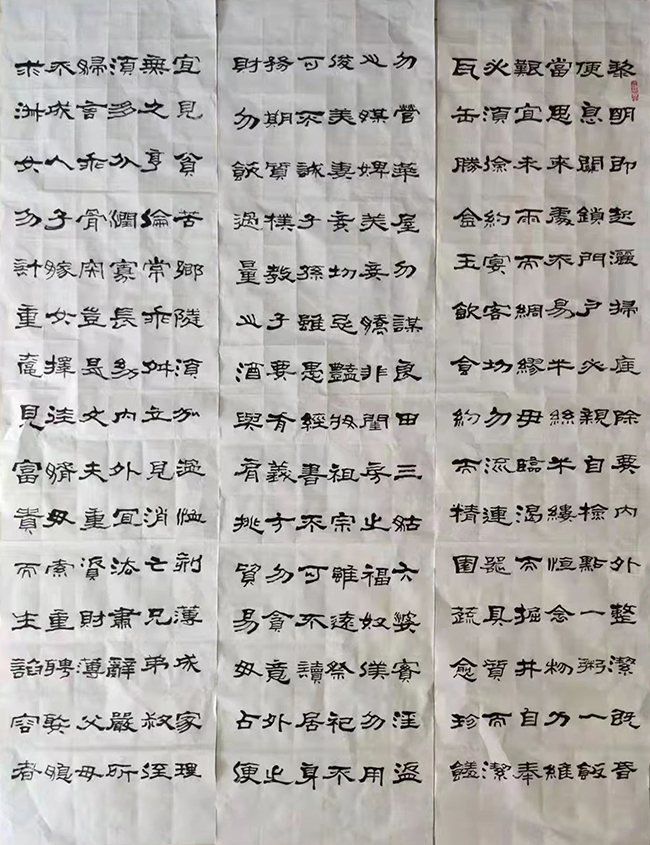 黎明即起灑掃庭除要內外整潔既昏
便息關鎖門戶必親自檢點一粥一飯
當思來處不易半絲半縷恒念物力維
艱宜未雨而綢繆毋臨渴而掘井自奉
必須儉約宴客切勿流連器具質而潔
瓦缶勝金玉飲食約而精園蔬愈珍饈
勿營華屋勿謀良田三姑六婆實淫盜
之媒婢美妾嬌非閨房之福奴僕勿用
俊美妻妾切忌豔妝祖宗雖遠祭祀不
可不誠子孫雖愚經書不可不讀居身
務期質樸教子要有義方勿貪意外之
財勿飲過量之酒與肩挑貿易毋占便
宜見貧苦鄉鄰須加溫恤刻薄成家理
無久享倫常乖舛立見消亡兄弟叔侄
須多分潤寡長幼內外宜法肅辭嚴听
婦言乖骨肉豈是丈夫重資財薄父母
不成人子嫁女擇佳婿毋索重聘娶媳
求淑女勿計重奩見富貴而生諂容者